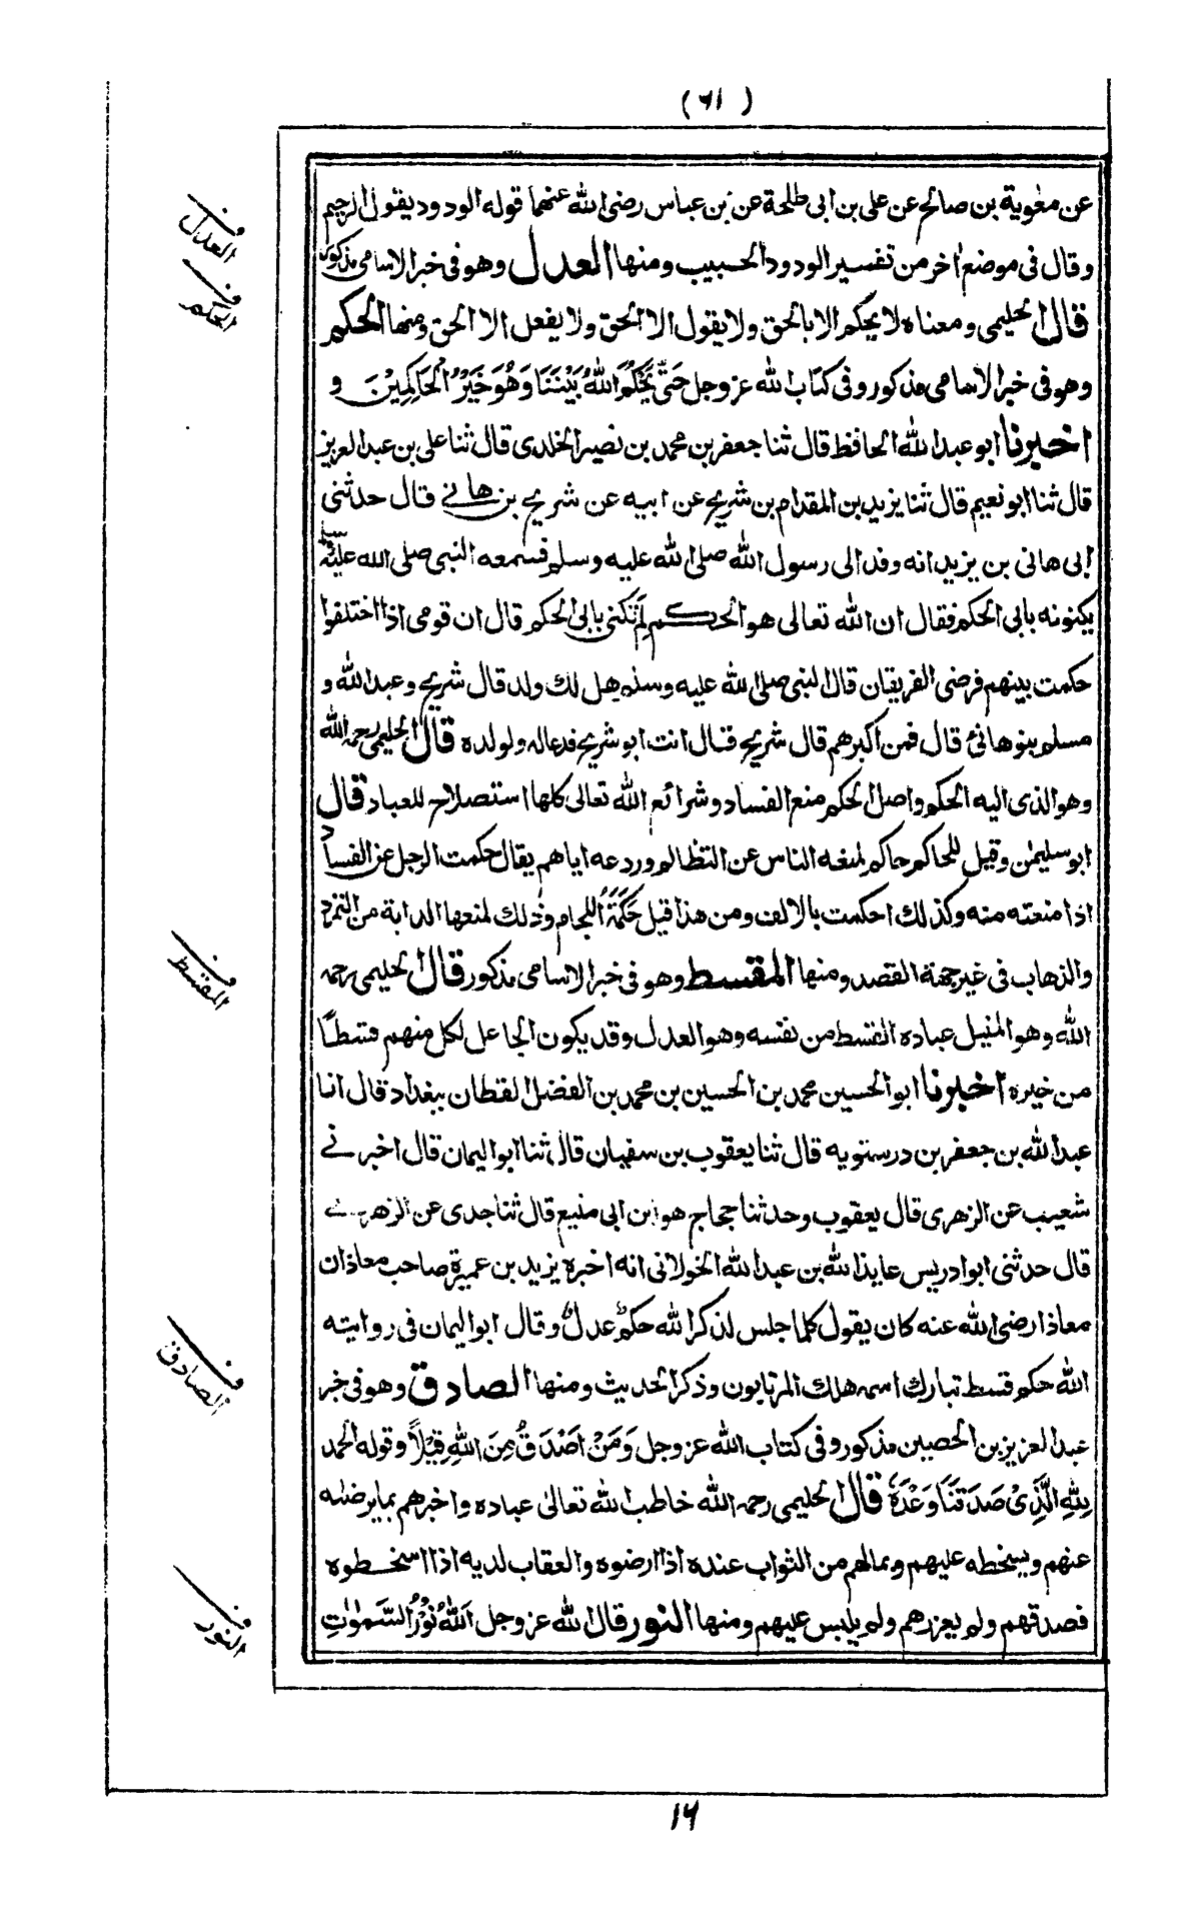 (٦١)
عن معوية بن صالح عن علي بن ابي طلحة عن بن عباس رضى الله عنهما قوله الودود يقول الرحيم
وقال في موضع اخر من تفسير الودود الحبيب ومنها العدل وهو في خبر الاسامى مذكور
قال الحليمى ومعناه لا يحكم الا بالحق ولا يقول الا الحق ولا يفعل الا الحق ومنها الحكم
وهو في خبر الاسامى مذكور وفي كتاب الله عز وجل حَتّٰى يَحْكُمَ اللّٰهُ بَيْنَنَا وَهُوَ خَيْرُ الْحَاكِمِيْنَ و
اخبرنا ابو عبد الله الحافظ قال ثنا جعفر بن محمد بن نصير الخلدى قال ثنا على بن عبد العزيز
قال ثنا ابو نعيم قال ثنا يزيد بن المقدام بن شريح عن ابيه عن شريح بن هانے قال حدثنى
ابى هانى بن يزيد انه وفد الى رسول الله صلى الله عليه وسلم فسمعه النبى صلى الله عليه وسلم
يكنونه بابى الحكم فقال ان الله تعالى هو الحكم لم تكنى بابى الحكم قال ان قومى اذا اختلفوا
حكمت بينهم فرضى الفريقان قال النبى صلى الله عليه وسلم هل لك ولد قال شريح وعبد الله و
مسلم بنو هانئ قال فمن اكبرهم قال شريح قال انت ابو شريح فدعا له ولولده قال الحليمى رحمه الله
وهو الذى اليه الحكم واصل الحكم منع الفساد وشرائع الله تعالى كلها استصلاح للعباد قال
ابو سليمٰن وقيل للحاكم حاكم لمنعه الناس عن التظالم وردعه اياهم يقال حكمت الرجل عن الفساد
اذا منعته منه وكذلك احكمت بالالف ومن هذا قيل حَكَمَةُ اللجام وذلك لمنعها الدابة من التمرد
والذهاب فى غير جهة القصد ومنها المقسط وهو فى خبر الاسامى مذكور قال الحليمى رحمه
الله وهو المنيل عباده القسط من نفسه وهو العدل وقد يكون الجاعل لكل منهم قسطًا
من خيره اخبرنا ابو الحسين محمد بن الحسين بن محمد بن الفضل القطان ببغداد قال انا
عبد الله بن جعفر بن درستويه قال ثنا يعقوب بن سفيان قال ثنا ابو اليمان قال اخبرنے
شعيب عن الزهرى قال يعقوب وحدثنا حجاج هو ابن ابى منيع قال ثنا جدى عن الزهرے
قال حدثنى ابو ادريس عايذ الله بن عبد الله الخولانى انه اخبره يزيد بن عميرة صاحب معاذ ان
معاذا رضى الله عنه كان يقول كلما جلس لذكر الله حكمٌ عدلٌ وقال ابو اليمان فى روايته
الله حكم قسط تبارك اسمه هلك المرتابون وذكر الحديث ومنها الصادق وهو فى خبر
عبد العزيز بن الحصين مذكور وفى كتاب الله عز وجل وَمَنْ اَصْدَقُ مِنَ اللّٰهِ قِيْلًا وقوله الحمد
لِلّٰهِ الَّذِىْ صَدَقَنَا وَعْدَهٗ قال الحليمى رحمه الله خاطب الله تعالىٰ عباده واخبرهم بما يرضيه
عنهم ويسخطه عليهم وبمالهم من الثواب عنده اذا ارضوه والعقاب لديه اذا اسخطوه
فصدقهم ولم يعزرهم ولم يلبس عليهم ومنها النور قال الله عز وجل اَللّٰهُ نُوْرُ السَّمٰوٰتِ
ف العدل
ف الحكم
ف المقسط
ف الصادق
ف النور
١٦